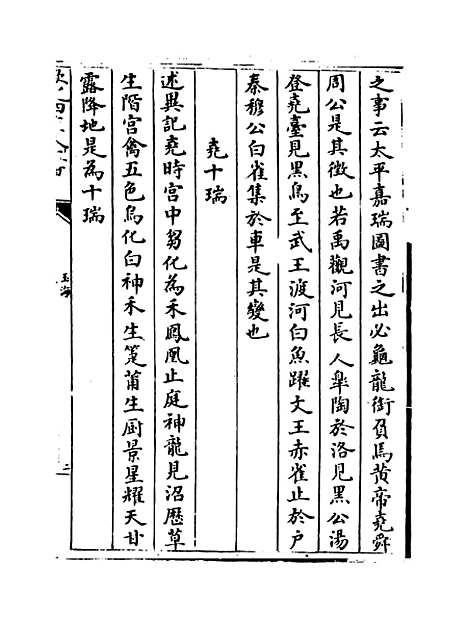 之事云太平嘉瑞圖書之出必龜龍銜負焉黃帝堯舜
周公是其徴也若禹觀河見長人皐陶於洛見黑公湯
登堯臺見黑烏至武王渡河白魚躍文王赤雀止於户
秦穆公白雀集於車是其變也
堯十瑞
述異記堯時宫中芻化為禾鳳凰止庭神龍見沼厯草
生階宫禽五色烏化白神禾生箑莆生厨景星耀天甘
露降地是為十瑞
玉海
三